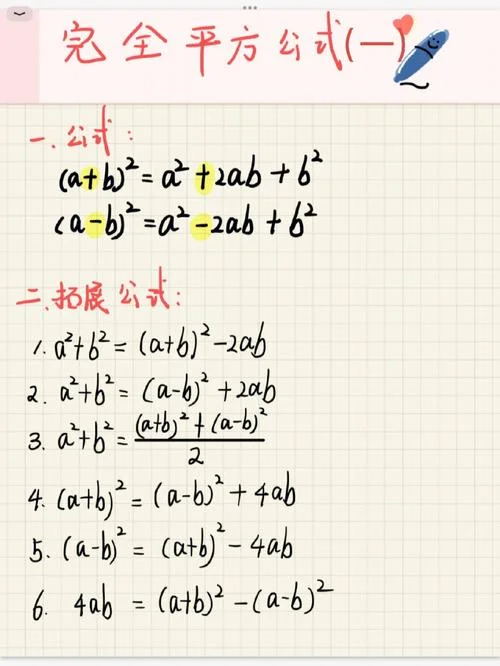 完全平方公式(一)
一.公式:
(a+b)²=a²+2ab+b²
(a-b)²=a²-2ab+b²
二.拓展公式:
1. a²+b²=(a+b)²-2ab
2. a²+b²=(a-b)²+2ab
3. a²+b²=\frac{(a+b)²+(a-b)²}{2}
4. (a+b)²=(a-b)²+4ab
5. (a-b)²=(a+b)²-4ab
6. 4ab=(a+b)²-(a-b)²